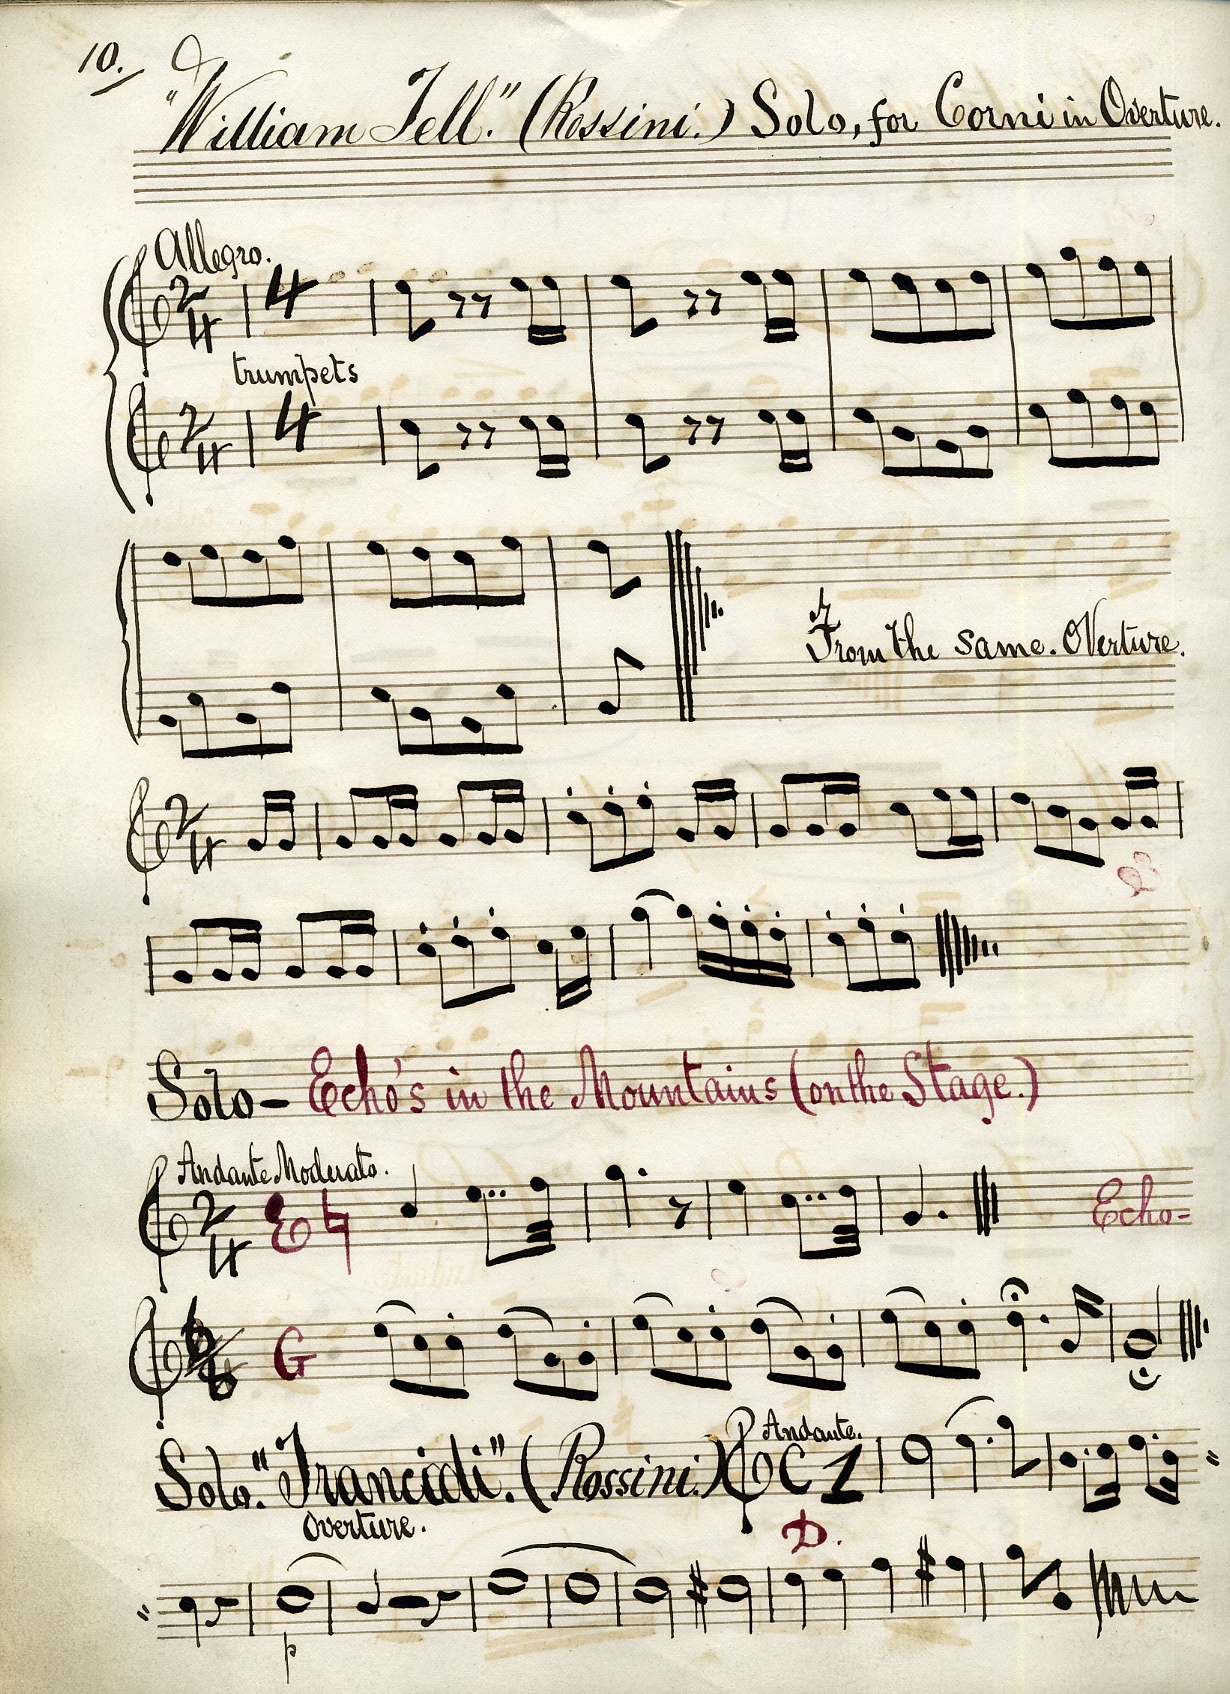 10.
"William Tell." (Rossini.) Solo, for Corni in Overture.
Allegro.
2/4 4
trumpets
2/4 4
From the same. Overture.
2/4
Solo - Echo's in the Mountains (on the Stage.)
Andante Moderato.
2/4 E♮ Echo-
G
Solo. "Trancidi". (Rossini.) Andante. C 1
Overture. D.
p